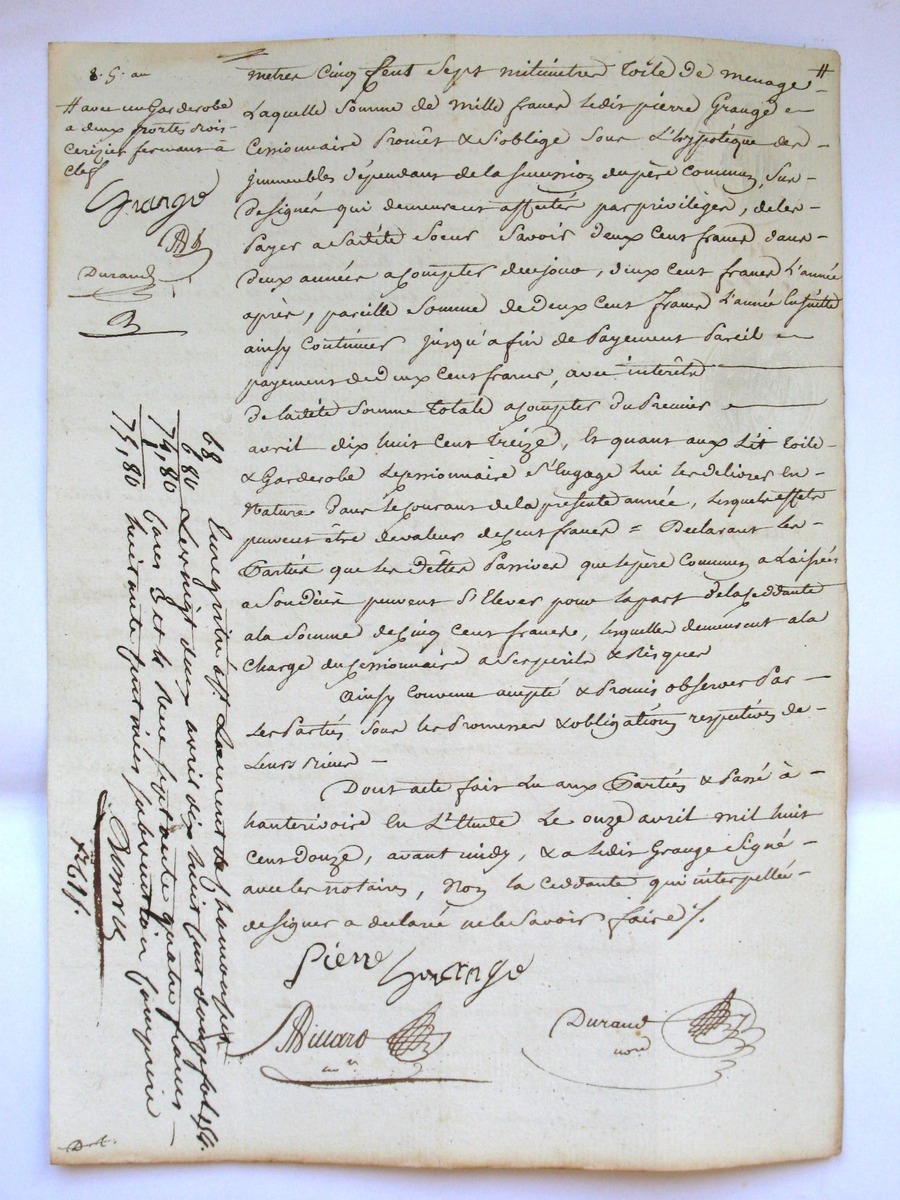 # avec un Garderobe
a deux portes bois
Cerizier fermant à
Clef
Grange
Durand
metres Cinq Cent Sept milimetres toile de menage #
Laquelle Somme de mille francs ledit pierre Grange
Cessionnaire Promêt & S'oblige Sous L'hypotéque des
jmmeubles dépendant de la succession du père Commun, Sus
designés qui demeurent affectés par privilège, de les
Payer a Ladite Soeur Savoir deux Cent francs dans
deux années a Compter de ce jour, deux cent francs L'année
après, pareille Somme de deux Cent francs L'année Ensuitte
ainsy Continuer jusqu'a fin de Payement Pareil
payement de deux Cent francs, avec intérêts
de ladite Somme totale a Compter du Premier
avril dix huit Cent treize, Et quant aux Lit toile
& Garderobe Le Cessionnaire S'Engage lui les délivrer En
Nature dans le Courant de la présente année, lesquels effets
peuvent être de valeur de cent francs = Declarant les
Parties que les dettes Passives que le père Commun a Laissées
a Son décès peuvent S'Elever pour la part de la Ceddante
a la Somme de Cinq Cent francs, lesquelles demeurent a la
Charge du Cessionnaire a Ses perils & Risques
Ainsy Convenu accepté & Promis observer Par
Les Parties Sous les Promesses & obligations respectives de
Leurs biens
Dont acte fait Lu aux Parties & Passé à
hauterivoire En L'Etude Le onze avril mil huit
Cent Douze, avant midy, & a ledit Grange Signé
avec les notaires, Non la Ceddante qui interpellée
de signer a declaré ne le Savoir faire ./.
Pierre Grange
Durand
nore
68
6,80
74,80
1
75,80
Enregistré à St Laurent de Chamousset
Le vingt deux avril dix huit Cent douze fol
Soixante quatre francs